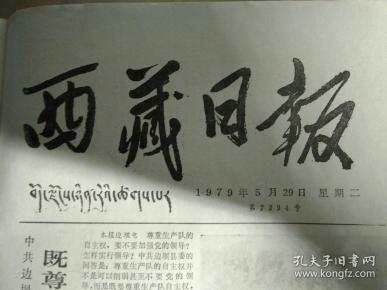 西藏日報
1979年5月29日 星期二
第7294号
中共边坝
既尊
本报边坝电 尊重生产队的
自主权，要不要加强党的领导？
怎样实行领导？中共边坝县委的
回答是：尊重生产队的自主权并
不是可以削弱甚至不要党的领
导，而是既要尊重生产队的自主
孔夫子旧书网